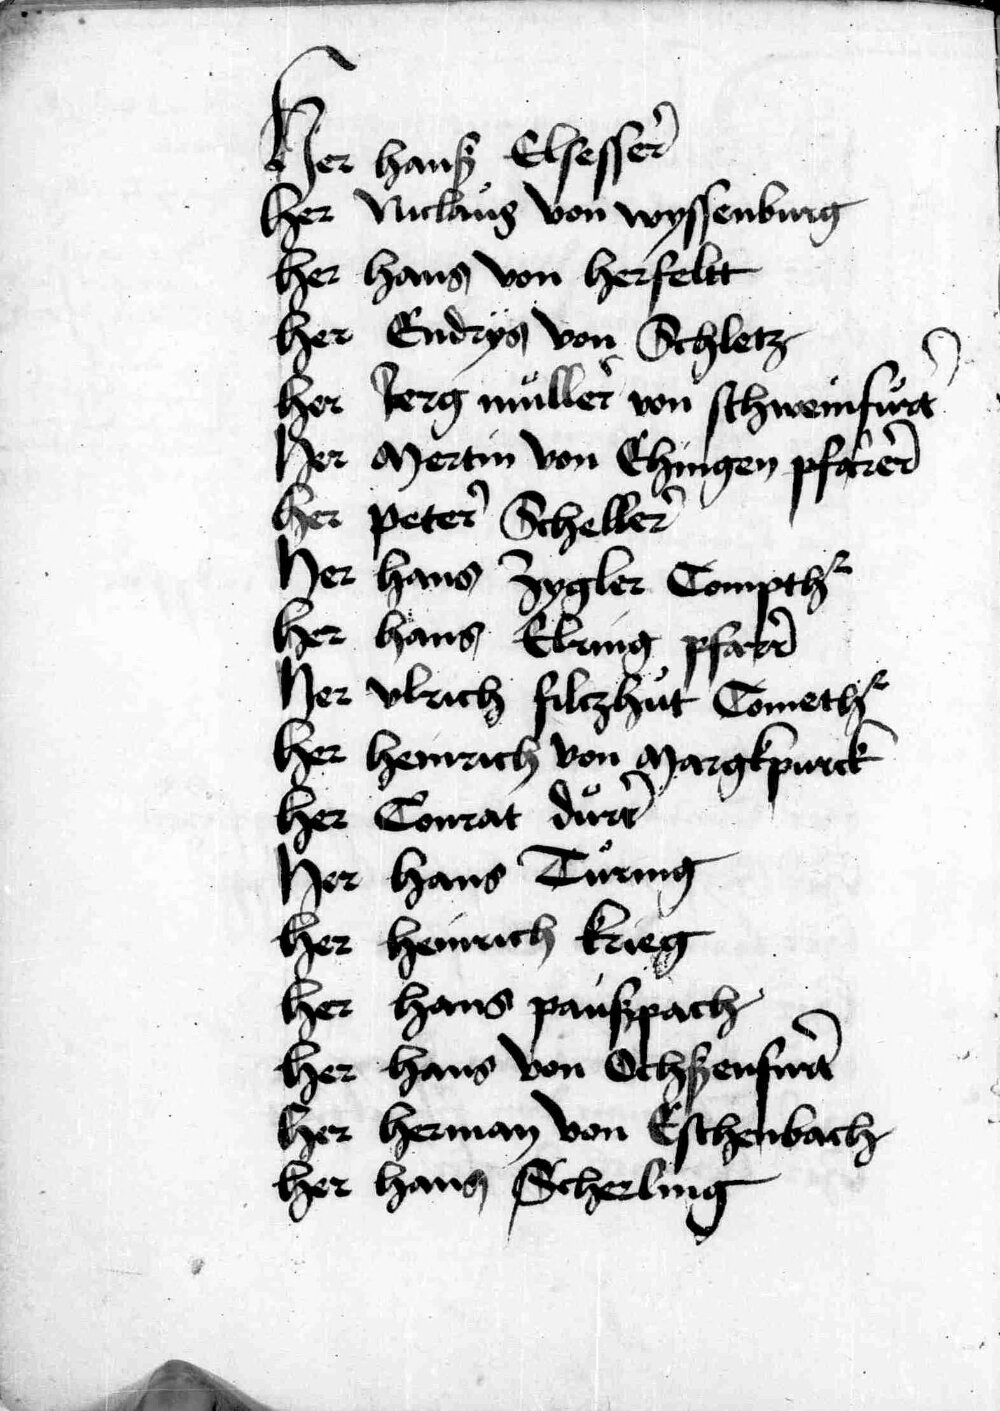 Her hanß Elsesser
her Niclaus von wyssenburg
her hans von herfeltt
her Endrys von Schletz
her Jerg müller von schweinfürt
Her Mertin von Ehingen pfarer
her peter Scheller
Her hans Zygler Compthr
her hans Ebring pfarr
Her vlrich filczhüt Comethr
her heinrich von Margkpurck
her Conrat dürr
Her hans Türing
her heinrich krieg
her hans paußpach
her hans von Ochßenfurt
her herman von Eschenbach
her hans Scherling